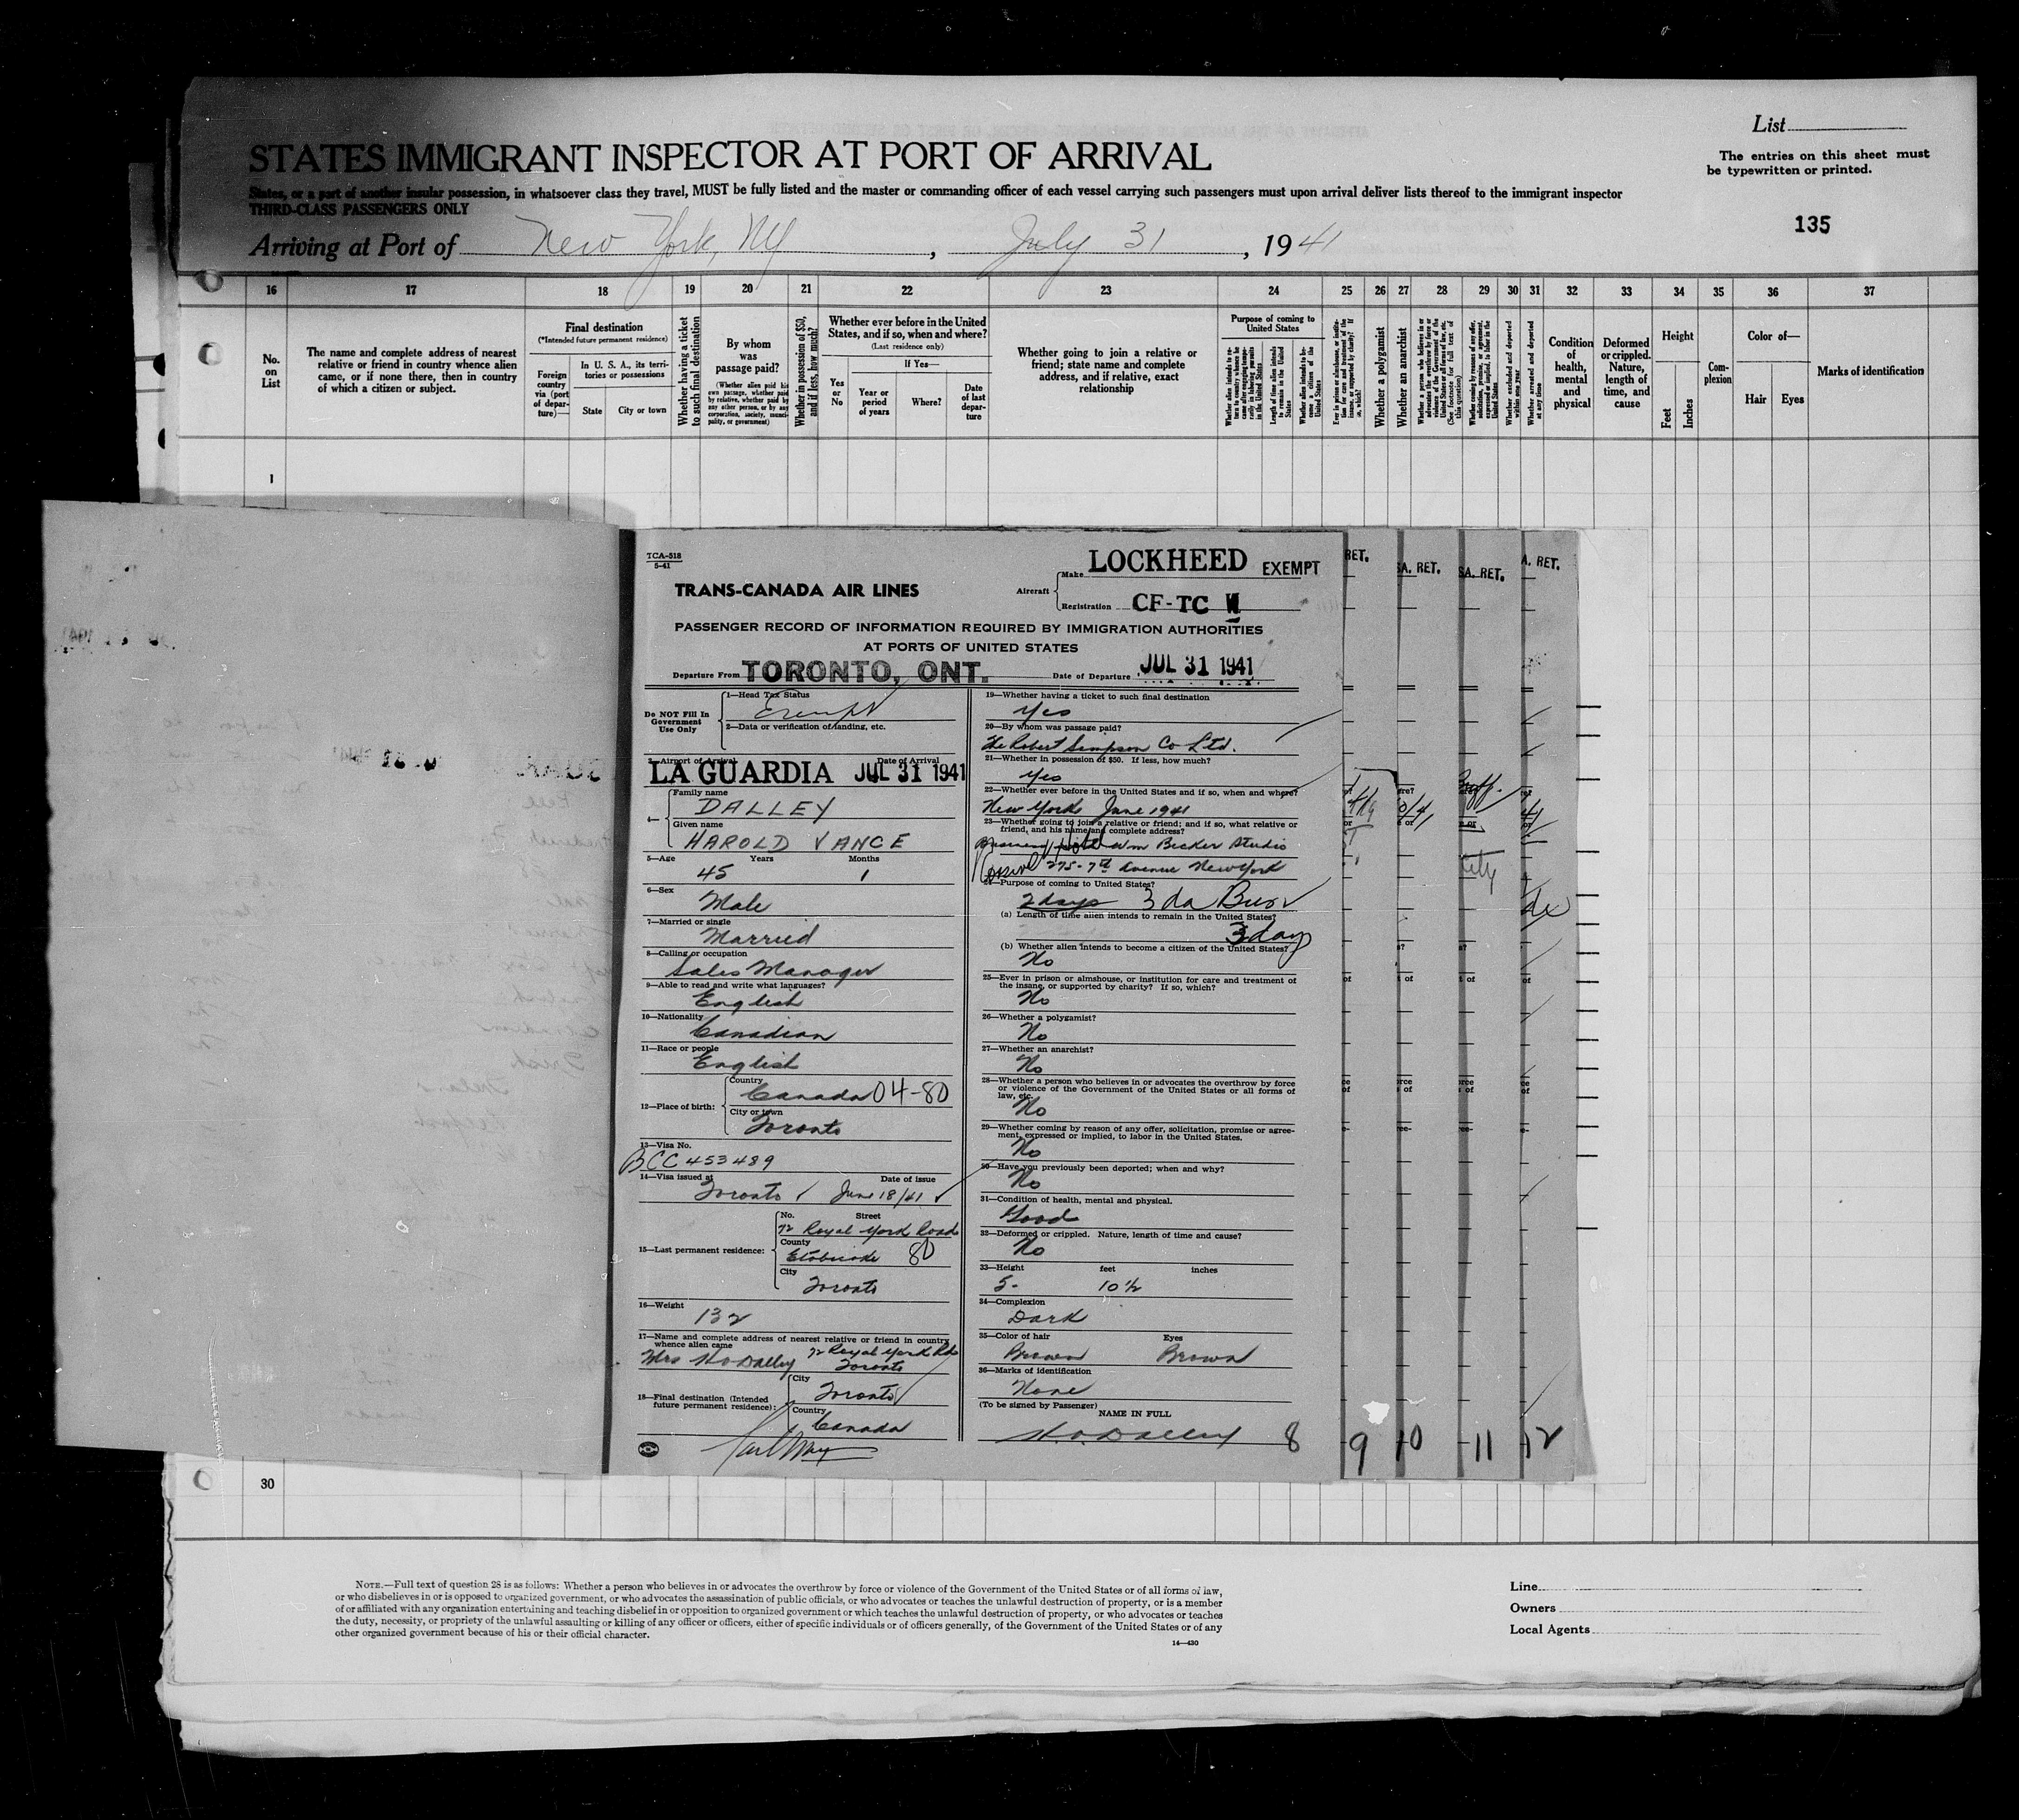 List
STATES IMMIGRANT INSPECTOR AT PORT OF ARRIVAL
The entries on this sheet must
be typewritten or printed.
States, or a part of another insular possession, in whatsoever class they travel, MUST be fully listed and the master or commanding officer of each vessel carrying such passengers must upon arrival deliver lists thereof to the immigrant inspector
THIRD-CLASS PASSENGERS ONLY
135
Arriving at Port of New York, NY, July 31, 1941
16 17 18 19 20 21 22 23 24 25 26 27 28 29 30 31 32 33 34 35 36 37
No. on List
The name and complete address of nearest relative or friend in country whence alien came, or if none there, then in country of which a citizen or subject.
Final destination
(*Intended future permanent residence)
Foreign country via (port of departure)—
In U. S. A., its territories or possessions
State
City or town
Whether having a ticket to such final destination
By whom was passage paid?
(Whether alien paid his own passage, whether paid by relative, whether paid by any other person, or by any corporation, society, municipality, or government)
Whether in possession of $50, and if less, how much?
Whether ever before in the United States, and if so, when and where?
(Last residence only)
If Yes—
Yes or No
Year or period of years
Where?
Date of last departure
Whether going to join a relative or friend; state name and complete address, and if relative, exact relationship
Purpose of coming to United States
Length of time alien intends to remain in the United States
Whether alien intends to become a citizen of the United States
Whether a polygamist
Whether an anarchist
Condition of health, mental and physical
Deformed or crippled. Nature, length of time, and cause
Height
Feet
Inches
Complexion
Color of—
Hair
Eyes
Marks of identification
1
TCA-518
5-41
TRANS-CANADA AIR LINES
Aircraft
Make LOCKHEED EXEMPT
Registration CF-TC W
PASSENGER RECORD OF INFORMATION REQUIRED BY IMMIGRATION AUTHORITIES
AT PORTS OF UNITED STATES
Departure From TORONTO, ONT.
Date of Departure JUL 31 1941
Do NOT Fill In
Government
Use Only
1—Head Tax Status
Exempt
2—Data or verification of landing, etc.
3—Airport of Arrival Date of Arrival
LA GUARDIA JUL 31 1941
4—
Family name
DALLEY
Given name
HAROLD VANCE
5—Age Years Months
45 1
6—Sex
Male
7—Married or single
Married
8—Calling or occupation
Sales Manager
9—Able to read and write what languages?
English
10—Nationality
Canadian
11—Race or people
English
12—Place of birth:
Country
Canada 04-80
City or town
Toronto
13—Visa No.
BCC 453489
14—Visa issued at Date of issue
Toronto June 18/41
15—Last permanent residence:
No. Street
72 Royal York Road
County
Etobicoke 80
City
Toronto
16—Weight
132
17—Name and complete address of nearest relative or friend in country
whence alien came
Mrs Dalley 72 Royal York Rd
Toronto
18—Final destination (Intended
future permanent residence):
City
Toronto
Country
Canada
19—Whether having a ticket to such final destination
Yes
20—By whom was passage paid?
The Robert Simpson Co Ltd.
21—Whether in possession of $50. If less, how much?
Yes
22—Whether ever before in the United States and if so, when and where?
New York June 1941
23—Whether going to join a relative or friend; and if so, what relative or
friend, and his name and complete address?
Business Hotel Wm Becker Studio
275-7th Avenue New York
24—Purpose of coming to United States?
2 days 3 da Bus
(a) Length of time alien intends to remain in the United States?
3 days
(b) Whether alien intends to become a citizen of the United States?
No
25—Ever in prison or almshouse, or institution for care and treatment of
the insane, or supported by charity? If so, which?
No
26—Whether a polygamist?
No
27—Whether an anarchist?
No
28—Whether a person who believes in or advocates the overthrow by force
or violence of the Government of the United States or all forms of
law, etc.
No
29—Whether coming by reason of any offer, solicitation, promise or agree-
ment, expressed or implied, to labor in the United States.
No
30—Have you previously been deported; when and why?
No
31—Condition of health, mental and physical.
Good
32—Deformed or crippled. Nature, length of time and cause?
No
33—Height feet inches
5- 10½
34—Complexion
Dark
35—Color of hair Eyes
Brown Brown
36—Marks of identification
None
(To be signed by Passenger)
NAME IN FULL
Dalley
8 9 10 11 12
RET.
A. RET.
SA. RET.
A. RET.
30
NOTE.—Full text of question 28 is as follows: Whether a person who believes in or advocates the overthrow by force or violence of the Government of the United States or of all forms of law,
or who disbelieves in or is opposed to organized government, or who advocates the assassination of public officials, or who advocates or teaches the unlawful destruction of property, or is a member
of or affiliated with any organization entertaining and teaching disbelief in or opposition to organized government or which teaches the unlawful destruction of property, or who advocates or teaches
the duty, necessity, or propriety of the unlawful assaulting or killing of any officer or officers, either of specific individuals or of officers generally, of the Government of the United States or of any
other organized government because of his or their official character.
14—430
Line
Owners
Local Agents